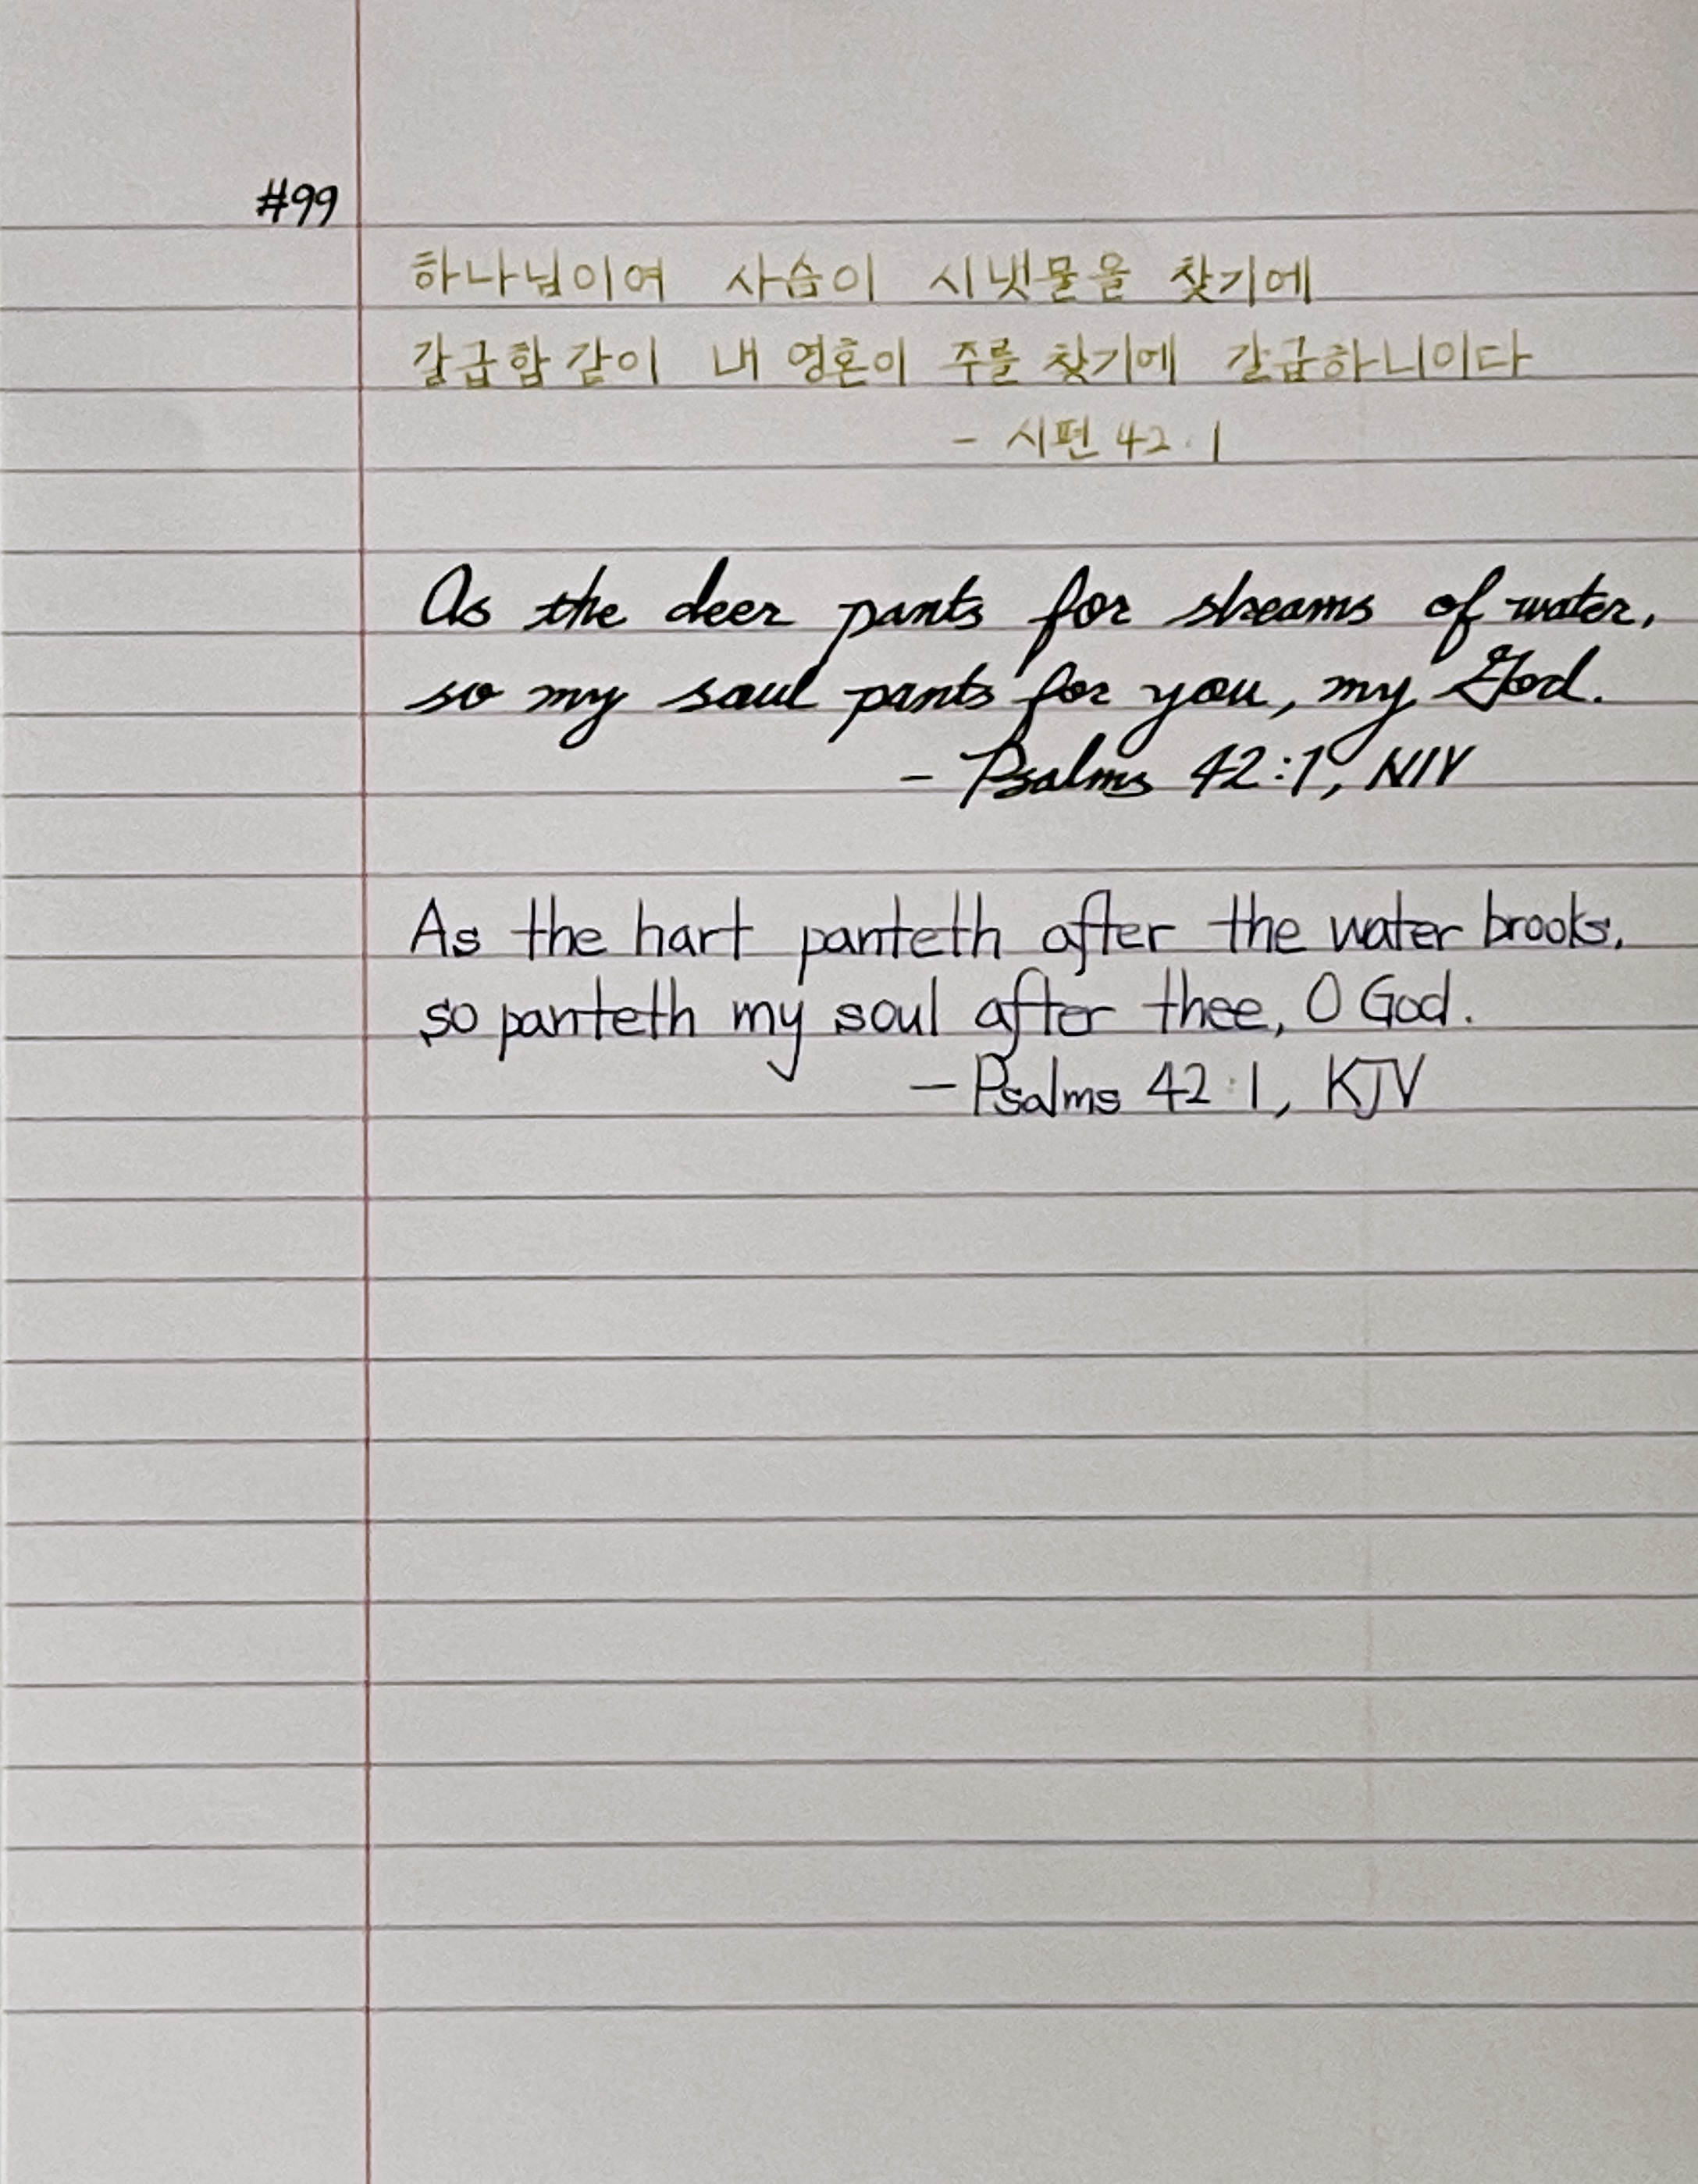 #99
하나님이여 사슴이 시냇물을 찾기에
갈급함 같이 내 영혼이 주를 찾기에 갈급하니이다
- 시편 42:1
As the deer pants for streams of water,
so my soul pants for you, my God.
- Psalms 42:1, NIV
As the hart panteth after the water brooks,
so panteth my soul after thee, O God.
- Psalms 42:1, KJV